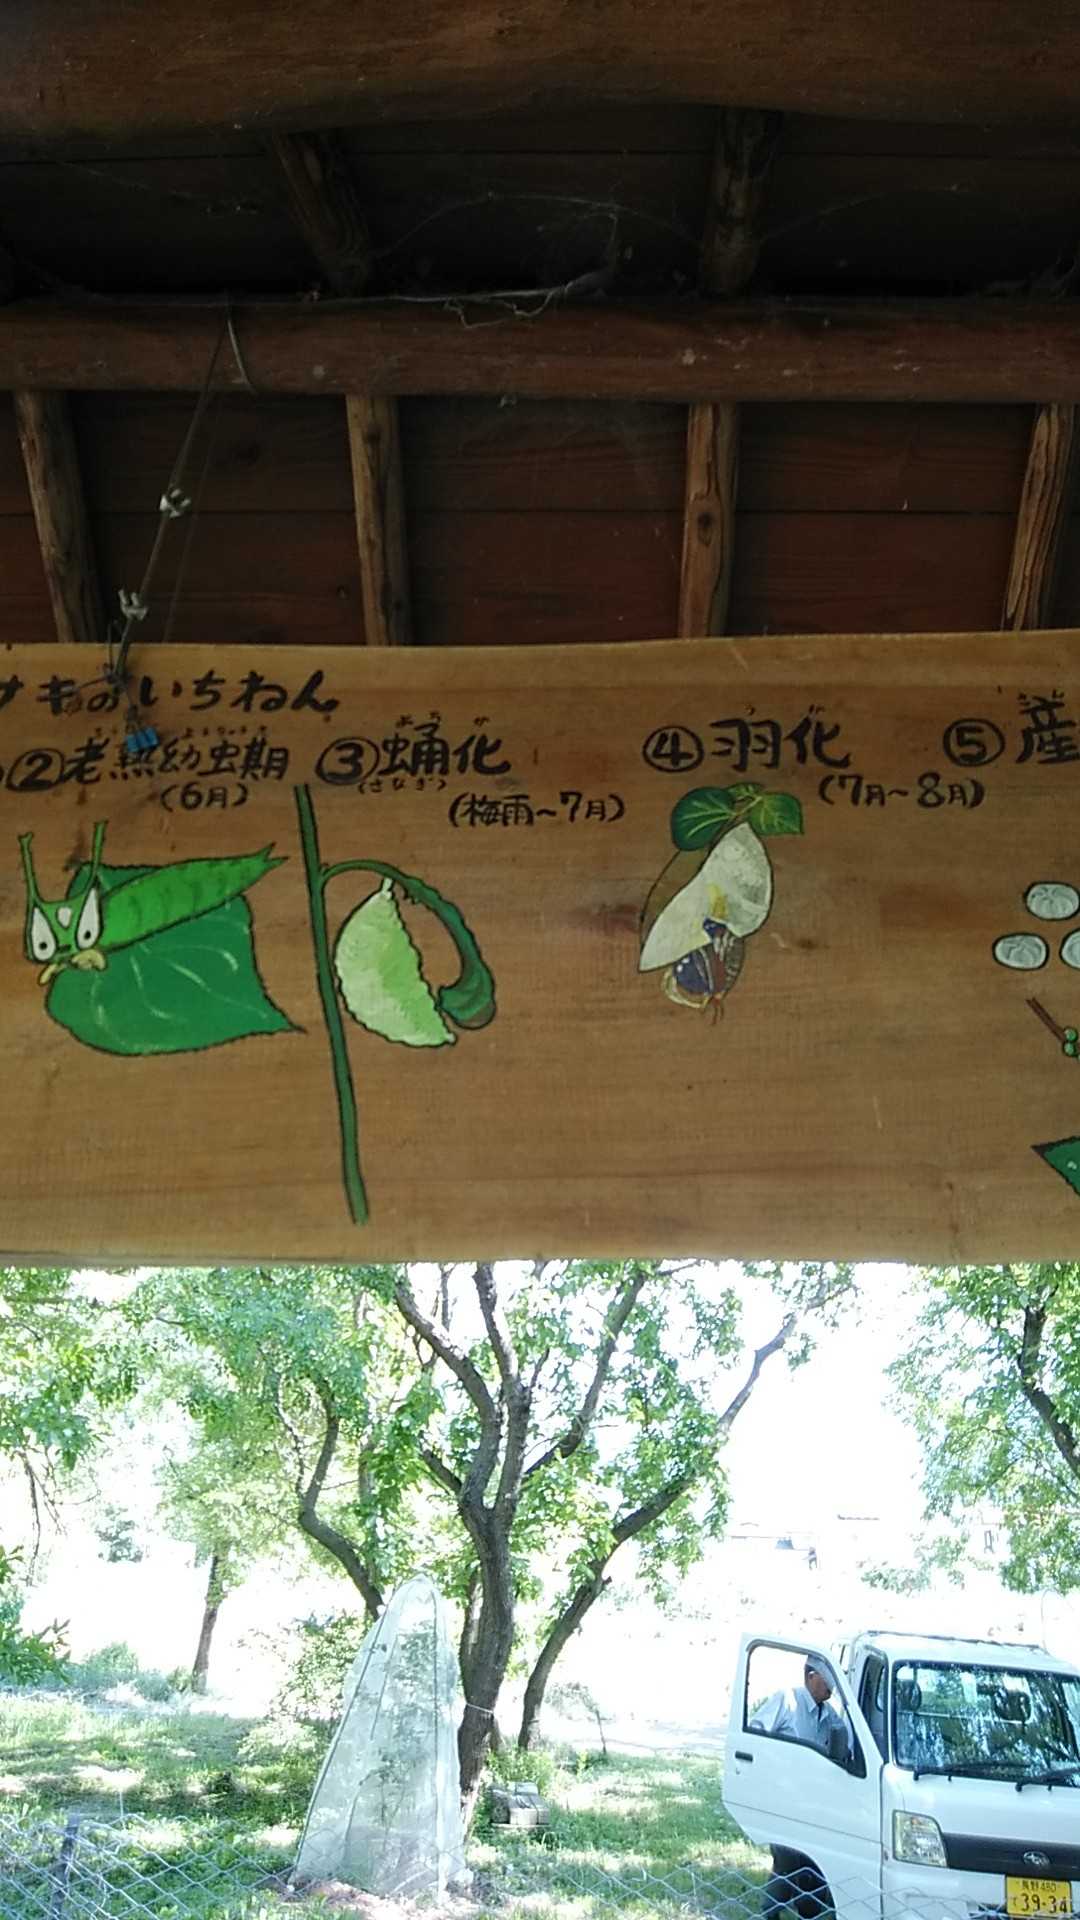 サキのいちねん
②老熟幼虫期
(6月)
ようか
③蛹化
(さなぎ)
(梅雨～7月)
うか
④羽化
(7月～8月)
⑤産
長野480
39-34